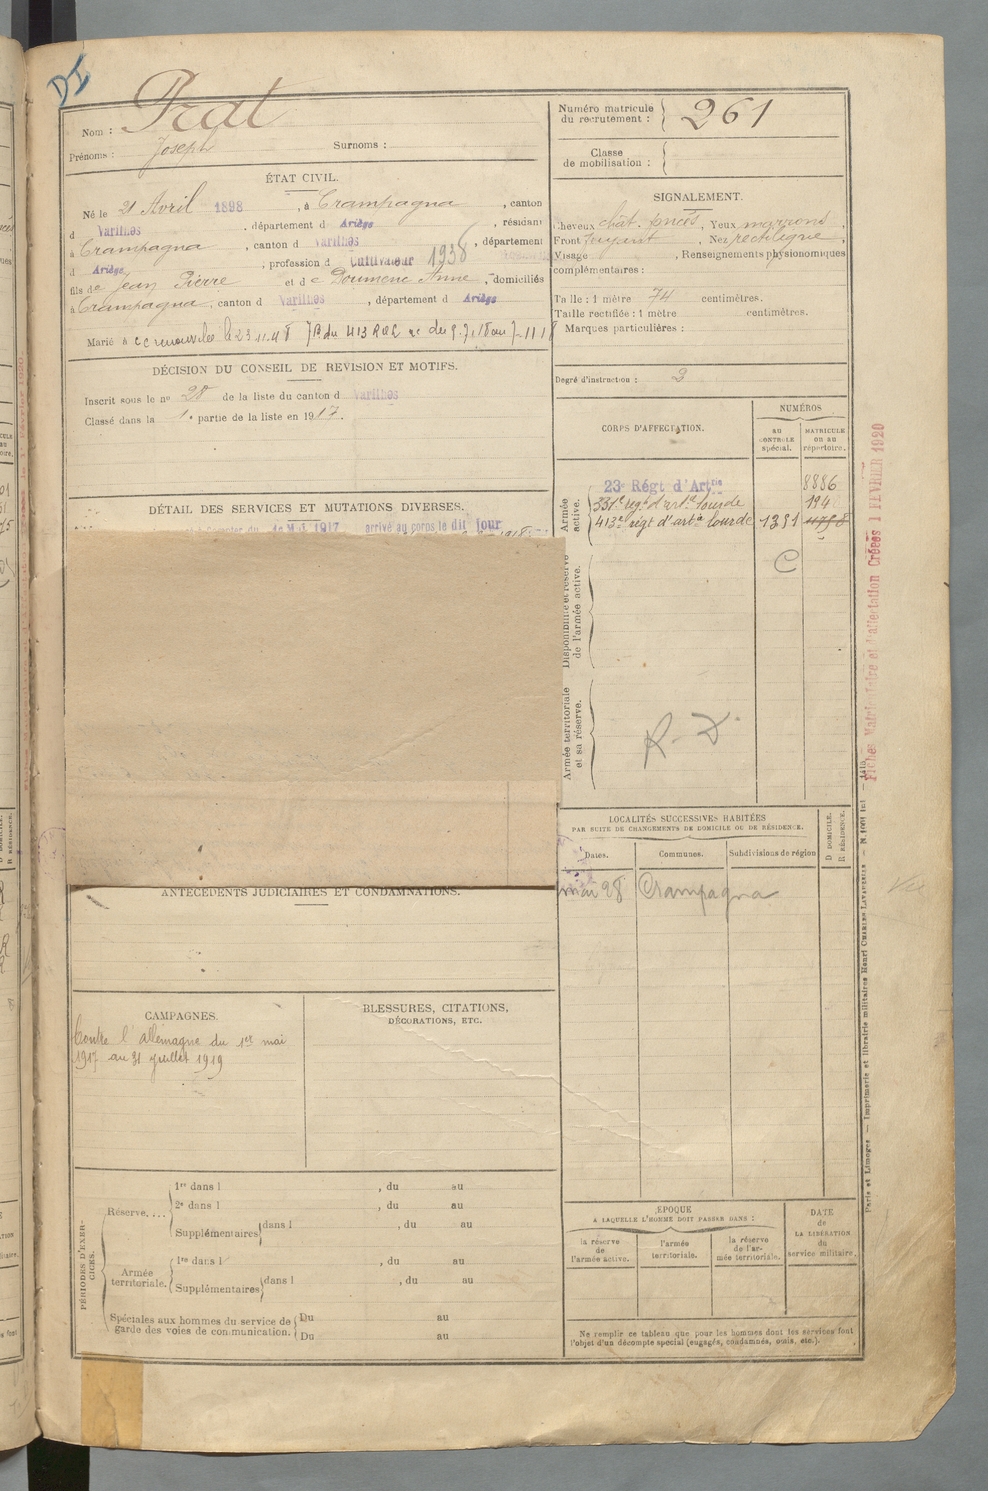 DI
Nom : Prat
Prénoms : Joseph Surnoms :
Numéro matricule du recrutement : 261
Classe de mobilisation :
ÉTAT CIVIL.
Né le 21 Avril 1898, à Crampagna, canton
d Varilhes, département d Ariège, résidant
à Crampagna, canton d Varilhes, département
d Ariège, profession d Cultivateur 1938
fils de Jean Pierre et de Doumenc Anne, domiciliés
à Crampagna, canton d Varilhes, département d Ariège
Marié à
DÉCISION DU CONSEIL DE REVISION ET MOTIFS.
Inscrit sous le no 28 de la liste du canton d Varilhes
Classé dans la 1e partie de la liste en 1917.
DÉTAIL DES SERVICES ET MUTATIONS DIVERSES.
1917 arrivé au corps le dit jour
SIGNALEMENT.
Cheveux chât. foncés, Yeux marrons
Front fuyant, Nez rectiligne,
Visage , Renseignements physionomiques
complémentaires :
Taille : 1 mètre 74 centimètres.
Taille rectifiée : 1 mètre centimètres.
Marques particulières :
Degré d'instruction : 3
CORPS D'AFFECTATION.
NUMÉROS
AU CONTROLE spécial.
MATRICULE ou au répertoire.
Armée active.
23e Régt d'Artrie 8886
331e régt d'arte lourde 194
413e régt d'arte lourde 1391
C
Disponibilité et réserve de l'armée active.
Armée territoriale et sa réserve.
R. D.
LOCALITÉS SUCCESSIVES HABITÉES
PAR SUITE DE CHANGEMENTS DE DOMICILE OU DE RÉSIDENCE.
Dates. Communes. Subdivisions de région
D DOMICILE.
R RÉSIDENCE.
mai 28 Crampagna
ANTÉCÉDENTS JUDICIAIRES ET CONDAMNATIONS.
CAMPAGNES.
Contre l'allemagne du 1er mai
1917 au 31 juillet 1919
BLESSURES, CITATIONS,
DÉCORATIONS, ETC.
PÉRIODES D'EXERCICES.
Réserve....
1re dans l , du au
2e dans l , du au
Supplémentaires dans l , du au
Armée territoriale.
1re dans l , du au
Supplémentaires dans l , du au
Spéciales aux hommes du service de
garde des voies de communication.
Du au
Du au
ÉPOQUE
A LAQUELLE L'HOMME DOIT PASSER DANS :
la réserve de l'armée active.
l'armée territoriale.
la réserve de l'armée territoriale.
DATE de LA LIBÉRATION du service militaire.
Ne remplir ce tableau que pour les hommes dont les services font
l'objet d'un décompte spécial (engagés, condamnés, omis, etc.).
Fiches Matriculaire et d'affectation Créées 1 FEVRIER 1920
Paris et Limoges. — Imprimerie et librairie militaires Henri CHARLES-LAVAUZELLE.